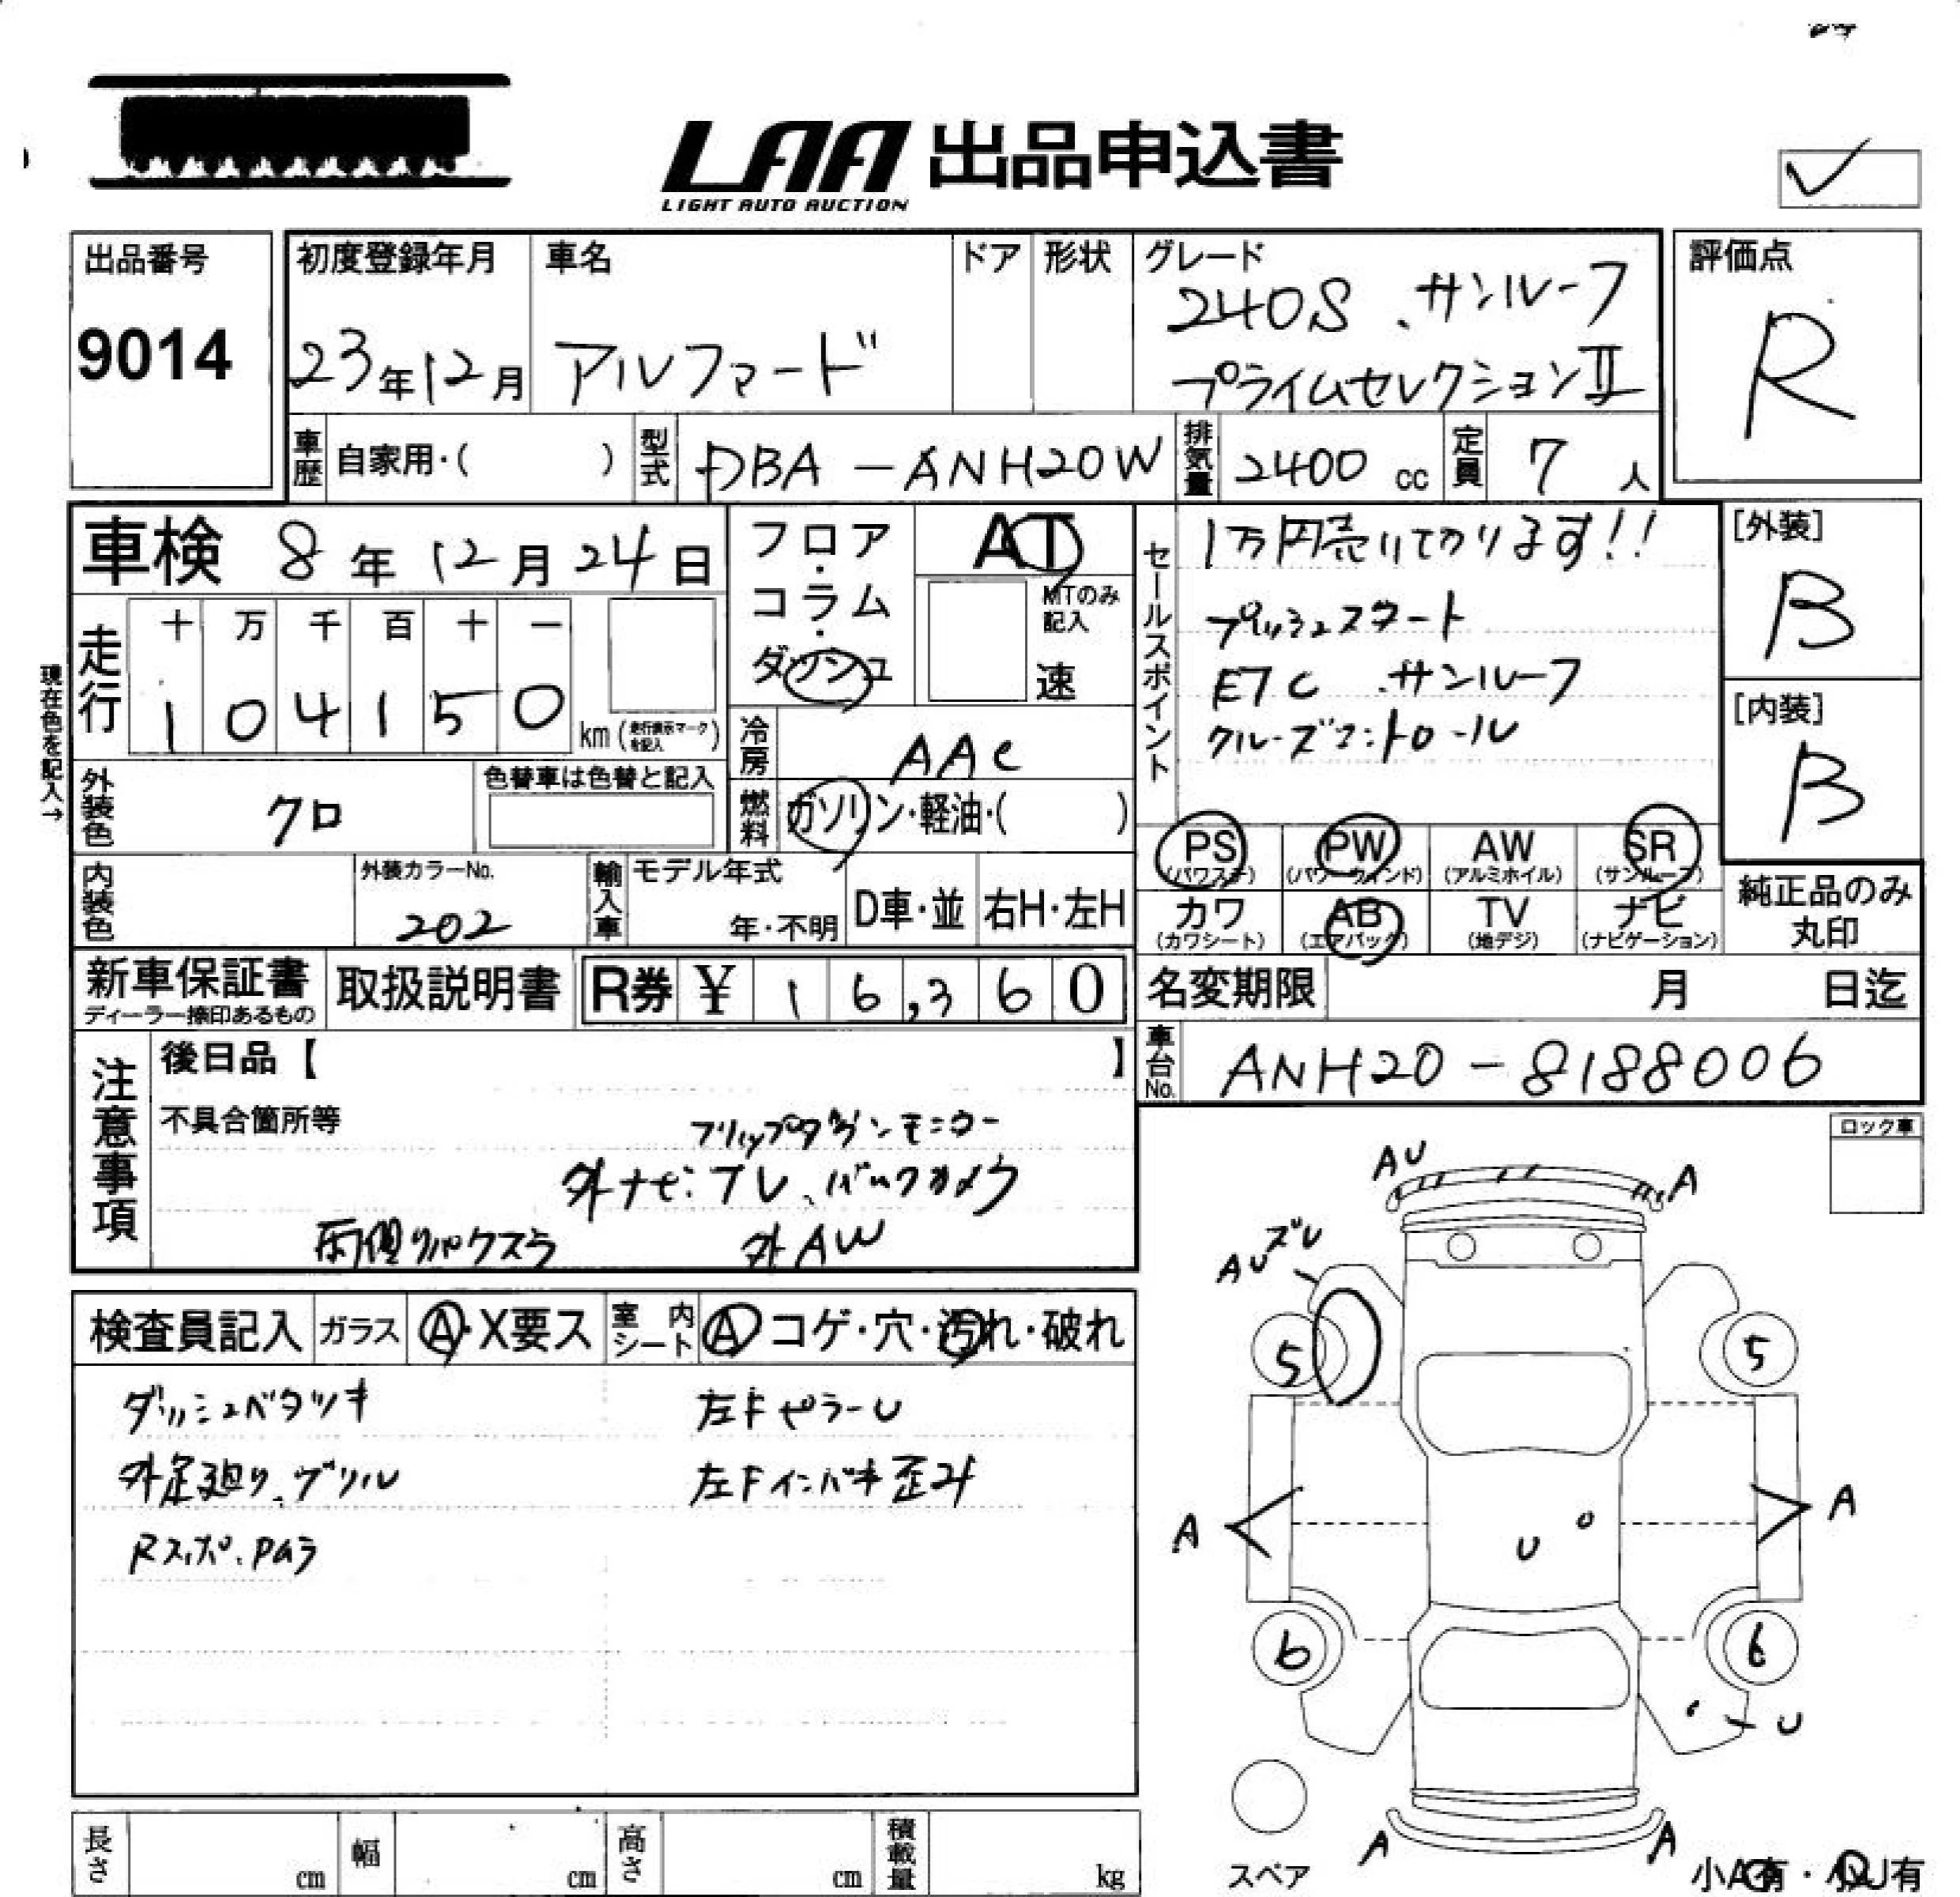 LAA 出品申込書
LIGHT AUTO AUCTION
出品番号
9014
初度登録年月
23年12月
車名
アルファード
ドア
形状
グレード
240S、サンルーフ
プライムセレクションⅡ
評価点
R
車歴 自家用・( )
型式 DBA-ANH20W
排気量 2400 cc
定員 7 人
車検 8年12月24日
フロア・コラム・ダッシュ
AT
MTのみ記入
速
現在色を記入→
走行 十 万 千 百 十 一
1 0 4 1 5 0
km(走行表示マークを記入)
冷房 AAC
燃料 ガソリン・軽油・( )
外装色 クロ
色替車は色替と記入
内装色
外装カラーNo.
202
輸入車
モデル年式
年・不明
D車・並
右H・左H
新車保証書
ディーラー捺印あるもの
取扱説明書
R券 ¥ 1 6,3 6 0
セールスポイント
1万円売りてかります!!
プッシュスタート
ETC サンルーフ
クルーズコントロール
[外装]
B
[内装]
B
PS (パワステ)
PW (パワーウインド)
AW (アルミホイル)
SR (サンルーフ)
カワ (カワシート)
AB (エアバック)
TV (地デジ)
ナビ (ナビゲーション)
純正品のみ丸印
名変期限 月 日迄
車台No. ANH20-8188006
注意事項
後日品【 】
不具合箇所等
フリップダウンモニター
外ナビ:TV、バックカメラ
両側リパワスラ 外AW
ロック車
検査員記入
ガラス A・X要ス
室内シート A コゲ・穴・汚れ・破れ
ダッシュベタツキ
左FピラーU
外足廻り、グリル
左Fインパネ歪み
Rスポ、PGラ
AU
A
ズレ
AU
5
5
A
A
U
6
6
U
A
A
スペア
小A有・小U有
長さ cm
幅 cm
高さ cm
積載量 kg